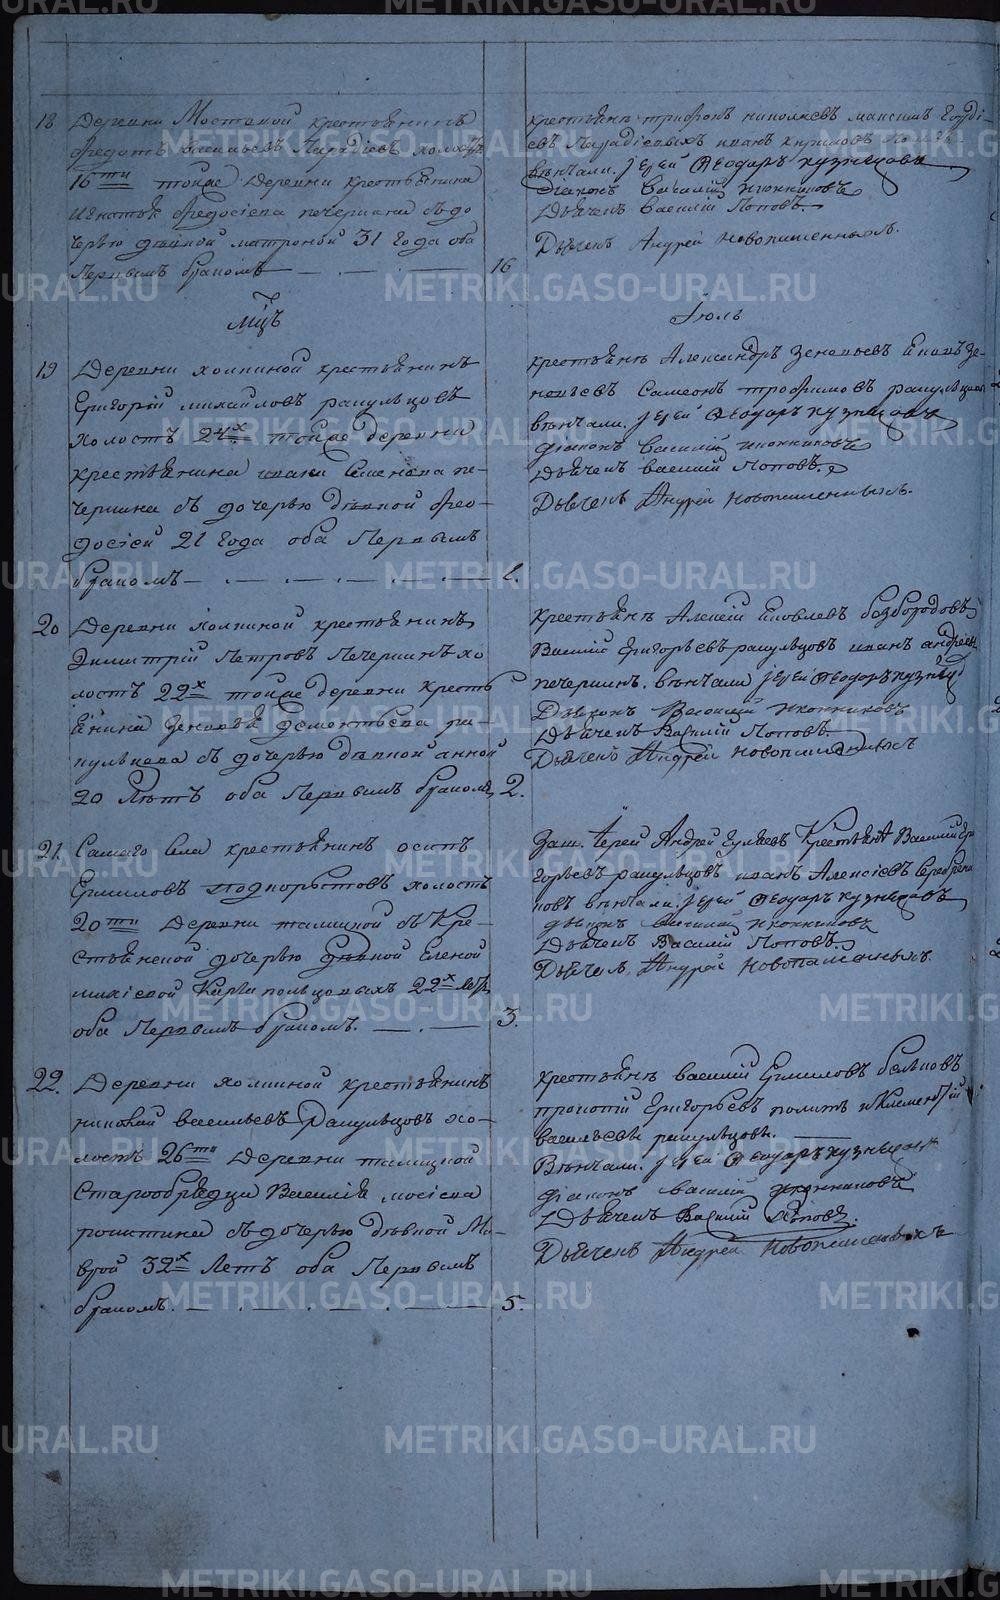 18 Деревни Мостовой крестьянинъ
Федотъ Васильевъ Парадіевъ холостъ
16ти тойже деревни крестьянина
Игнатья Федосіева Печеркина съ до
черью девкой Матроной 31 года оба
Первымъ бракомъ 16
крестьянъ Трифонъ Николаевъ Максимъ
Парадіевыхъ Иванъ Кириловъ
вѣнчали. Іерей Ѳеодоръ Кузнецовъ
Діаконъ Василій Иконниковъ
Дьячекъ Василій Поповъ.
Дьячекъ Андрей Новопашенныхъ.
Мцъ Іюль
19 Деревни Холкиной крестьянинъ
Григорій Михайловъ Ракульцовъ
холостъ 24х тойже деревни
крестьянина Ивана Семенова Пе-
черкина съ дочерью девкой Фео-
досіей 21 года оба Первымъ
бракомъ 1.
крестьянъ Александръ Зеновьевъ Иванъ Зе-
новьевъ Самеонъ Трофимовъ Ракульцовы
вѣнчали. Іерей Ѳеодоръ Кузнецовъ
діаконъ Василий Иконниковъ
Дьячекъ Василий Поповъ.
Дьячекъ Андрей Новопашенныхъ.
20 Деревни Холкиной крестьянинъ
Димитрій Петровъ Печеркинъ хо
лостъ 22х тойже деревни кресть
янина Зеновья Дементьева Ра-
кульцева съ дочерью девкой Анной
20 Лѣтъ оба Первымъ бракомъ 2.
Крестьянъ Алексій Яковлевъ Безбородовъ
Василій Григорьевъ Ракульцовъ Иванъ Андреевъ
Печеркинъ. вѣнчали Іерей Ѳеодоръ Кузнецовъ
Дьяконъ Василий Иконниковъ
Дьячекъ Василій Поповъ.
Дьячекъ Андрей Новопашенныхъ
21 Самаго Села крестьянинъ Осипъ
Ермиловъ Подкорытовъ холостъ
20ти Деревни Талицкой съ Кре-
стьянской дочерью девкой Еленой
Карпапольцовыхъ 22х лѣтъ
оба Первымъ бракомъ. 3.
Заш. Іерей Андрей Крестьянъ Василій Гри
горьевъ Ракульцовъ Иванъ Алексіевъ Серебрени
ковъ вѣнчали. Іерей Ѳеодоръ Кузнецовъ
діаконъ Василий Иконниковъ
Дьячекъ Василій Поповъ.
Дьячекъ Андрей Новопашенныхъ
22. Деревни Холкиной крестьянинъ
Николай Васильевъ Ракульцовъ хо-
лостъ 26ти Деревни Талицкой
Старообрядца Василія Мосіева
съ дочерью девкой Ма-
врой 32х Летъ оба Первымъ
бракомъ. 5.
крестьянъ Василий Ермиловъ
Прокопій Григорьевъ и Климентій
Васильевъ Ракульцовы.
Вѣнчали. Іерей Ѳеодоръ Кузнецовъ
діаконъ Василій Иконниковъ
Дьячекъ Василий Поповъ.
Дьячекъ Андрей Новопашенныхъ
METRIKI.GASO-URAL.RU